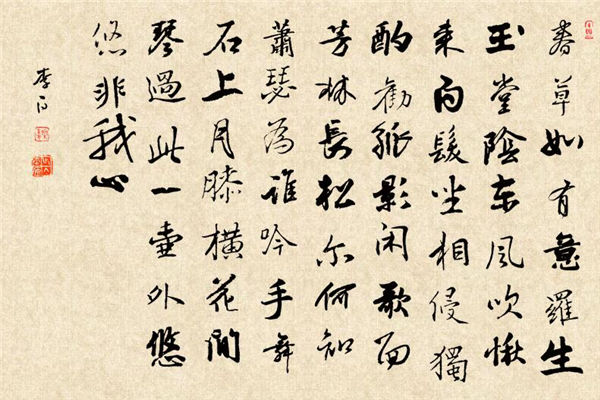 春草如有意羅生
玉堂陰东風吹愁
来白髮坐相侵獨
酌勸孤影闲歌面
芳林長松尔何知
蕭瑟為誰吟手舞
石上月膝橫花間
琴過此一壺外悠
悠非我心
李